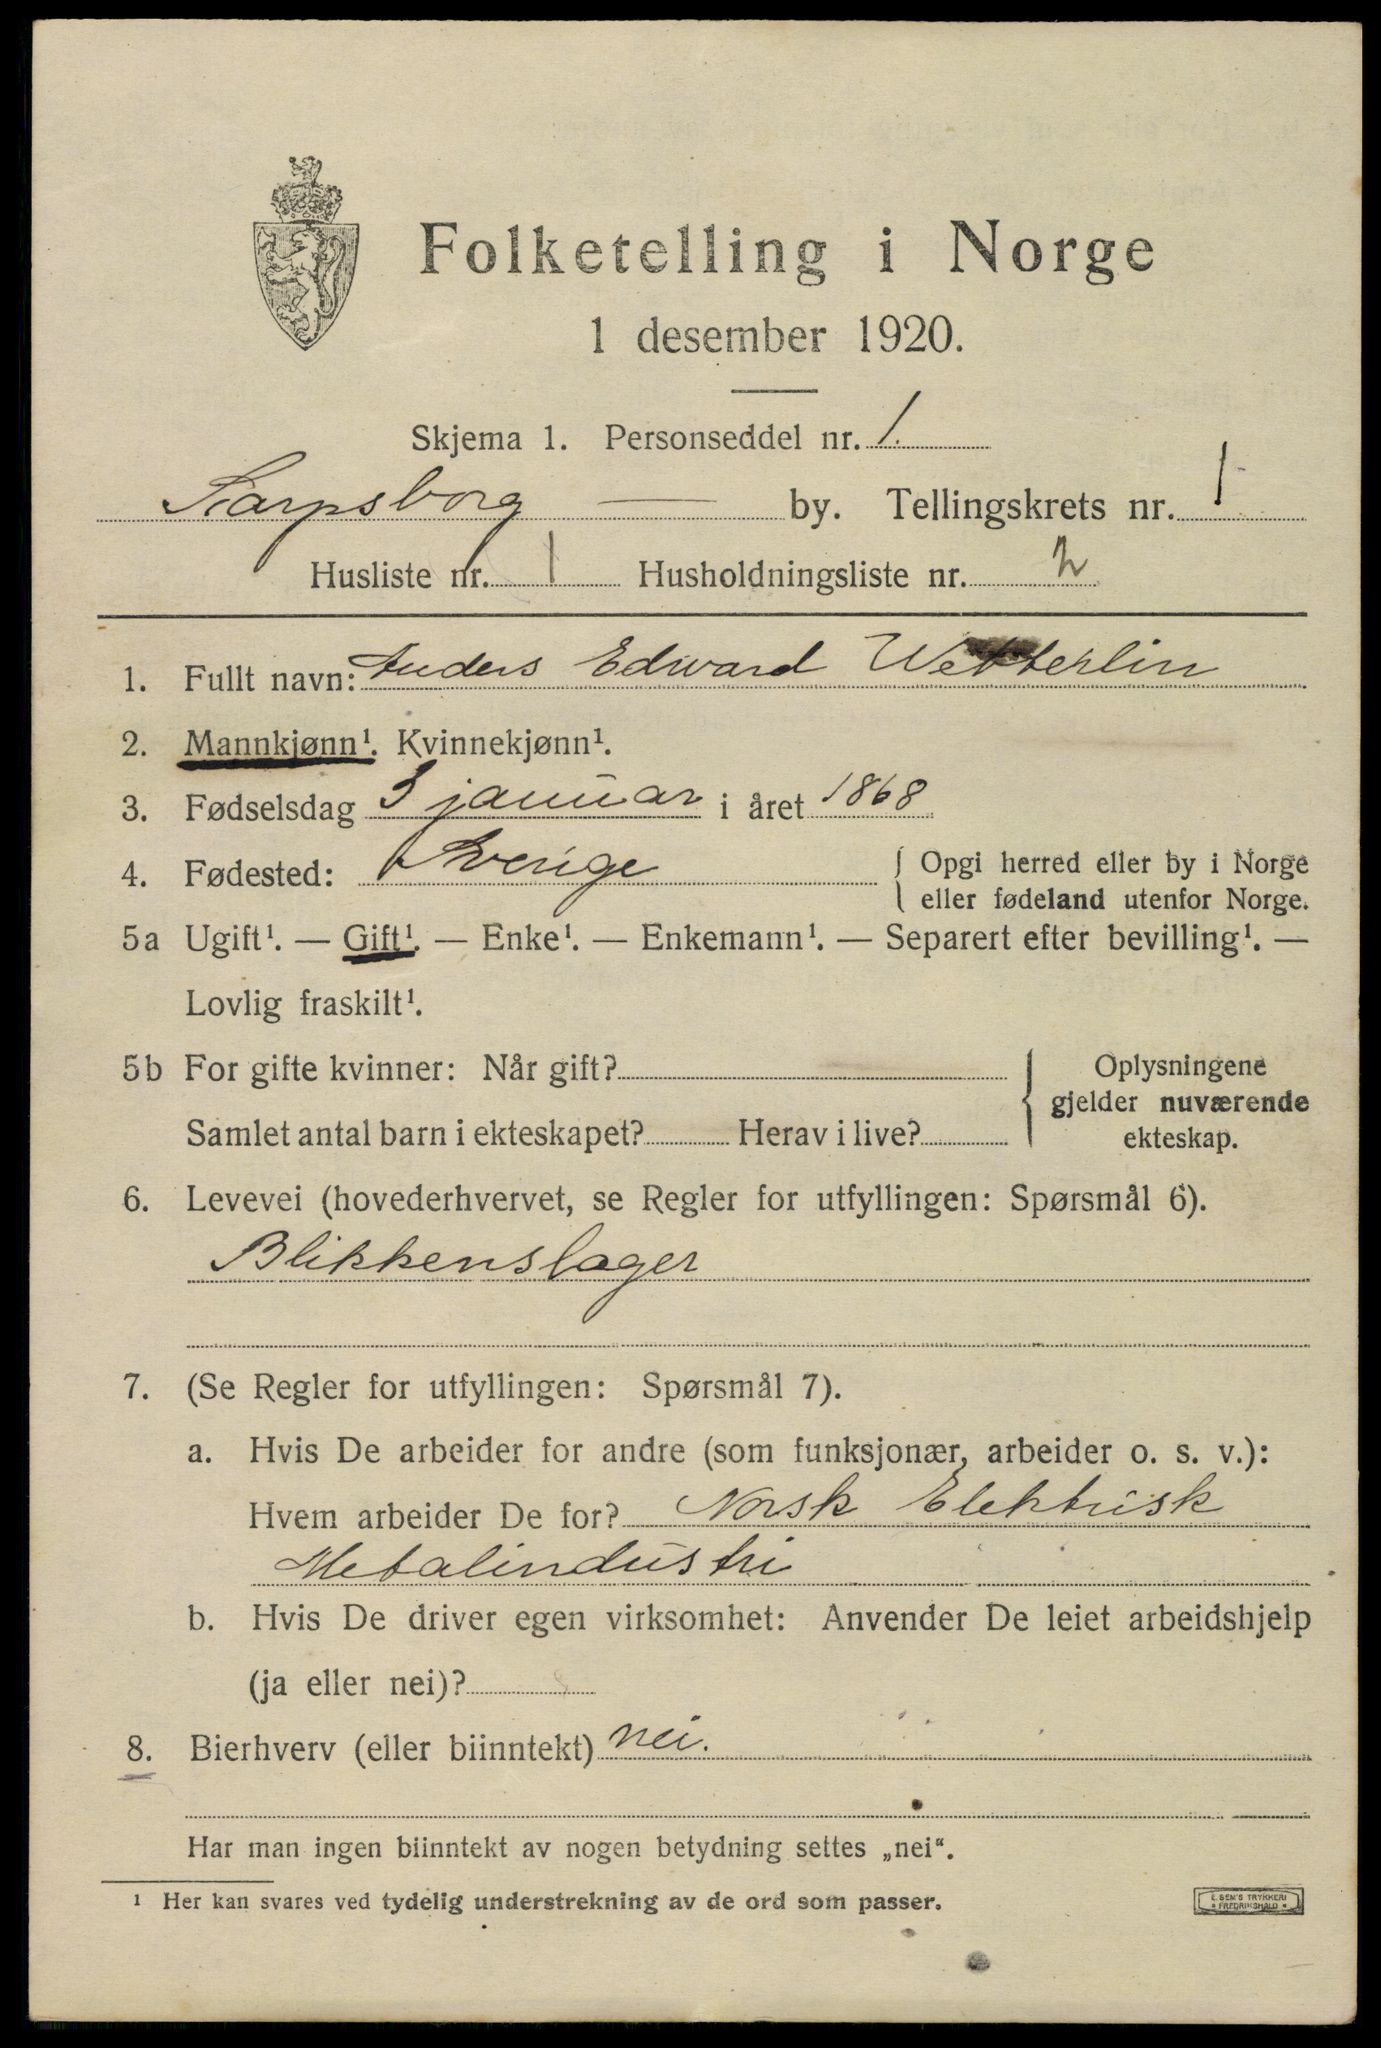 Folketelling i Norge
1 desember 1920.
Skjema 1. Personseddel nr. 1.
Sarpsborg — by. Tellingskrets nr. 1
Husliste nr. 1 Husholdningsliste nr. 2
1. Fullt navn: Anders Edward Wetterlin
2. Mannkjønn¹. Kvinnekjønn¹.
3. Fødselsdag 3 januar i året 1868
4. Fødested: Sverige { Opgi herred eller by i Norge
eller fødeland utenfor Norge.
5a Ugift¹. — Gift¹. — Enke¹. — Enkemann¹. — Separert efter bevilling¹. —
Lovlig fraskilt¹.
5b For gifte kvinner: Når gift?
Samlet antal barn i ekteskapet? Herav i live?
{ Oplysningene
gjelder nuværende
ekteskap.
6. Levevei (hovederhvervet, se Regler for utfyllingen: Spørsmål 6).
Blikkenslager
7. (Se Regler for utfyllingen: Spørsmål 7).
a. Hvis De arbeider for andre (som funksjonær, arbeider o. s. v.):
Hvem arbeider De for? Norsk Elektrisk
Metalindustri
b. Hvis De driver egen virksomhet: Anvender De leiet arbeidshjelp
(ja eller nei)?
8. Bierhverv (eller biinntekt) nei.
Har man ingen biinntekt av nogen betydning settes „nei“.
¹ Her kan svares ved tydelig understrekning av de ord som passer.
E. SEM'S TRYKKERI
* FREDRIKSHALD *